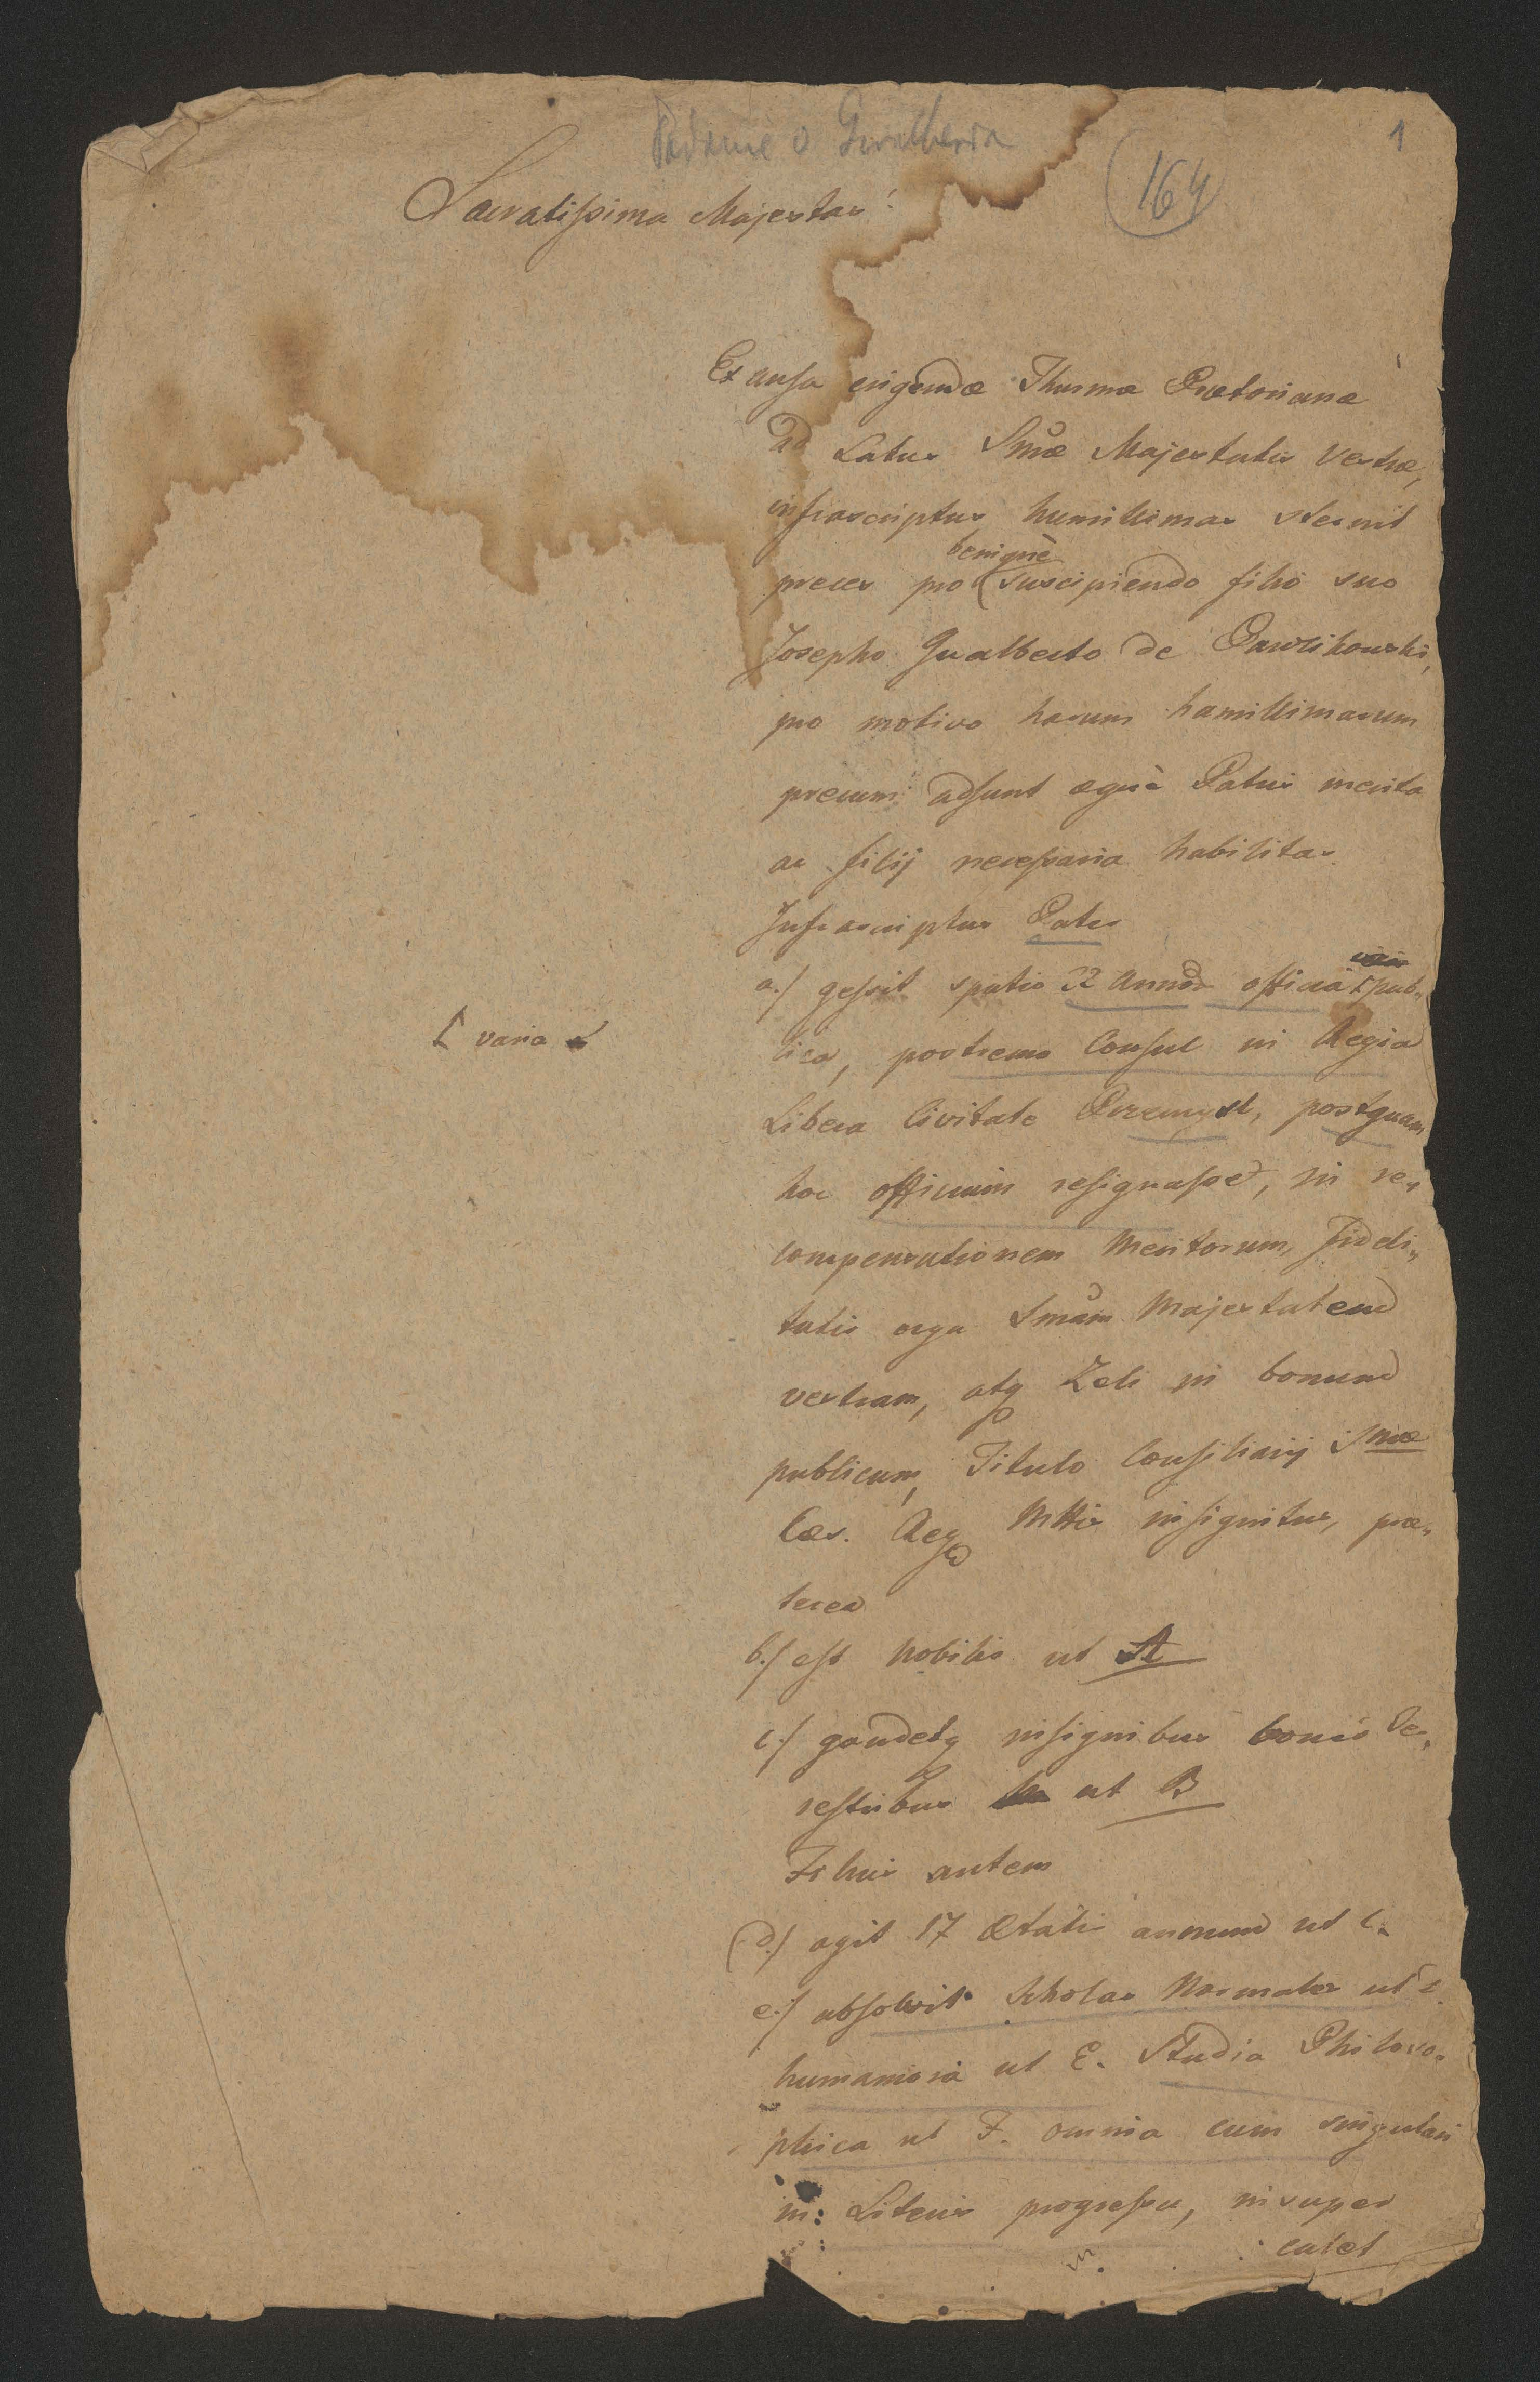 Podanie o Gwalberta
1
164
Sacratissima Majestas!
Ex ansa erigendæ Thurmæ Prætorianæ
ad Latus Smæ Majestatis Vestræ,
infrascriptus humillimas sternit
benignè
preces pro suscipiendo filio suo
Josepho Gualberto de Pawlikowski,
pro motivo harum humillimarum
precum adsunt æquè Patris merita
ac filij necessaria habilitas.
Infrascriptus Pater
a./ gessit spatio 32 annor officia ⌈ pub„
⌈ varia
lica, postremo Consul in Regia
Libera Civitate Præmysl, postquam
hoc officium resignasset, in re„
compensationem Meritorum, fideli„
tatis erga Smam Majestatem
vestram, atq Zeli in bonum
publicum, Titulo Consiliarij Smæ
Cæs. Reg Mttis insignitus, præ„
terea
b./ est Nobilis ut A
c./ gaudetq insignibus bonis Ter„
restribus ut B
Filius autem
d./ agit 17 Ætatis annum ut C.
e./ absolvit Scholas Normales ut
humaniora ut E. Studia Philoso„
phica ut F. omnia cum singulari
in Literis progressu, insuper
calet